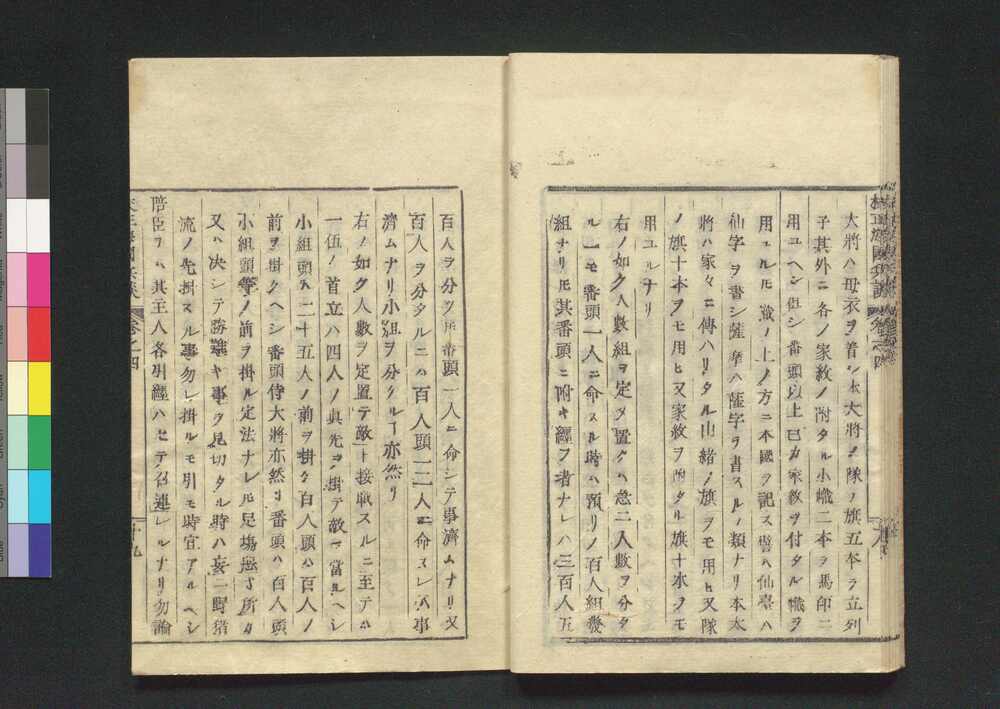 大將ハ母衣ヲ着シ本大將ノ隊ノ旗五本ヲ立列
子其外ニ各ノ家紋ノ附タル小幟二本ヲ馬印ニ
用ユヘシ但シ番頭以上己カ家紋ヲ付タル幟ヲ
用ユルモ幟ノ上ノ方ニ本國ヲ記ス譬ハ仙臺ハ
仙字ヲ書シ薩摩ハ薩字ヲ書スルノ類ナリ本大
將ハ家々ニ傳ハリタル由緒ノ旗ヲモ用ヒ又隊
ノ旗十本ヲモ用ヒ又家紋ヲ附タル旗十本ヲモ
用ユルナリ
右ノ如ク人數組ヲ定メ置クハ急ニ人數ヲ分タ
ル一モ番頭一人ニ命スル時ハ預リノ百人組幾
組ナリ𪜈其番頭ニ附キ纒フ者ナレハ三百人五
百人ヲ分ツ𪜈番頭一人ニ命シテ事濟ムナリ又
百人ヲ分タルニハ百人頭一人ニ命スレハ事
濟ムナリ小組ヲ分タルヿ亦然リ
右ノ如ク人數ヲ定置テ敵ト接戰スルニ至テハ
一伍ノ首立ハ四人ノ眞先ヲ掛テ敵ニ當ルヘシ
小組頭ハ二十五人ノ前ヲ掛ケ百人頭ハ百人ノ
前ヲ掛クヘシ番頭侍大將亦然リ番頭ハ百人頭
小組頭等ノ前ヲ掛ル定法ナレ𪜈足塲悪シ所カ
又ハ決シテ勝難キ事ヲ見切タル時ハ妄ニ野猪
流ノ先掛スル事勿レ掛ルモ引モ時宜アルヘシ
陪臣ヲハ其主人各引纒ハセテ召連レルナリ勿論
十九